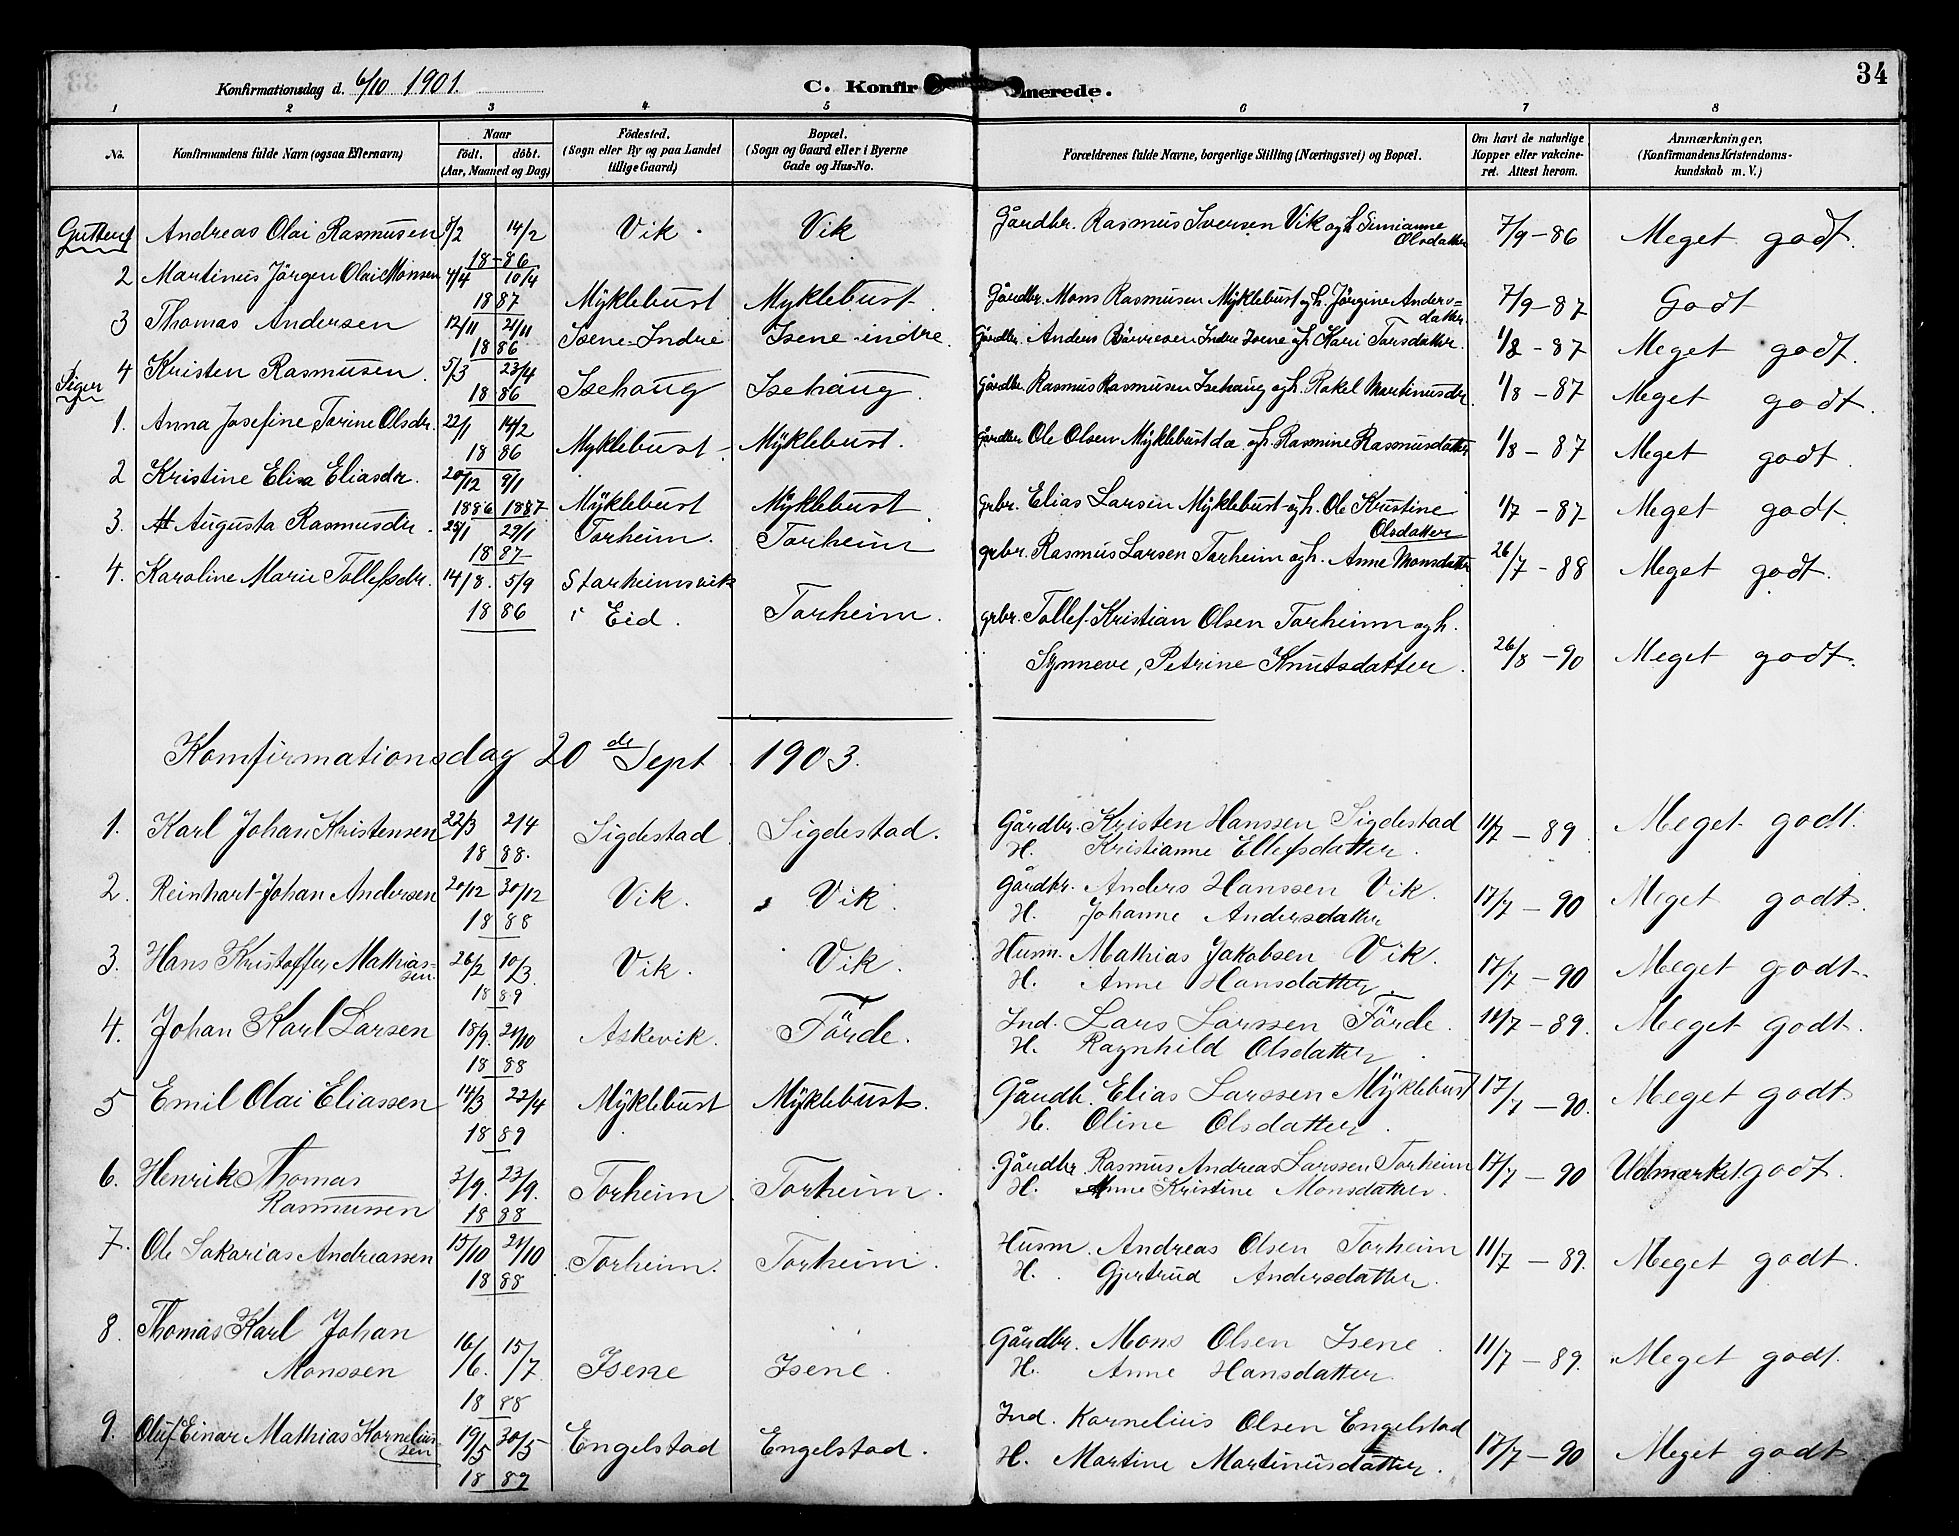 34
Konfirmationsdag d. 6/10 1901.
C. Konfirmerede.
1 2 3 4 5 6 7 8
No.
Konfirmandens fulde Navn (ogsaa Efternavn)
Naar
født. døbt.
(Aar, Maaned og Dag)
Fødested.
(Sogn eller By og paa Landet
tillige Gaard)
Bopæl.
(Sogn og Gaard eller i Byerne
Gade og Hus-No.
Forældrenes fulde Navne, borgerlige Stilling (Næringsvei) og Bopæl.
Om havt de naturlige
Kopper eller vakcine-
ret. Attest herom.
Anmærkninger.
(Konfirmandens Kristendoms-
kundskab m. V.)
Gutter
Andreas Olai Rasmusen 8/2 14/2 Vik. Vik Gårdbr. Rasmus Iversen Vik og h. Simianne 7/9-86 Meget godt.
18-86 Olsdatter
2 Martinus Jörgen Olai Monsen 4/4 10/4 Myklebust Myklebust. Gårdbr. Mons Rasmusen Myklebust og h. Jörgine Anders= 7/9-87 Godt
1887 datter
3 Thomas Andersen 12/11 21/11 Isene-Indre Isene-indre. Gårdbr. Anders Indre Isene og h. Kari Tarsdatter. 1/8-87 Meget godt.
1886
4 Kristen Rasmusen. 5/3 23/4 Isehaug Isehaug. Gårdbr. Rasmus Rasmusen Isehaug og h. Rakel Martinusdr. 1/8-87 Meget godt.
1886
Piger
1. Anna Josefine Tarine Olsdr. 22/1 14/2 Myklebust- Myklebust. Gårdbr. Ole Olsen Myklebust da og h. Rasmine Rasmusdatter 1/8-87 Meget godt.
1886
2 Kristine Elisa Eliasdr. 20/12 9/1 Myklebust Myklebust. grbr. Elias Larsen Myklebust og h. Ole Kristine 1/7-87 Meget godt.
1886 1887 Olsdatter
3. Augusta Rasmusdr. 25/1 29/1 Torheim. Torheim grbr. Rasmus Larsen Torheim og h. Anne Monsdatter 26/7-88 Meget godt.
1887
4. Karoline Marie Tollefsdr. 14/8. 5/9 Starheimsvik
1886 i Eid. Torheim. grbr. Tollef Kristian Olsen Torheim og h.
Synneve, Petrine Knutsdatter. 26/8-90 Meget godt.
Komfirmationsdag 20de Sept 1903.
1. Karl Johan Kristensen 22/3 2/4 Sigdestad Sigdestad. Gårdbr. Kristen Hanssen Sigdestad 11/7-89. Meget godt.
1888. H. Kristianne Ellefsdatter.
2. Reinhart Johan Andersen 20/12 30/12 Vik. Vik. Gårdbr. Anders Hanssen Vik. 17/7-90 Meget godt.
1888 H. Johanne Andersdatter
3. Hans Kristoffer Mathias= 26/2 10/3 Vik. Vik. Husm. Mathias Jakobsen Vik. 17/7-90 Meget godt.
sen. 1889 H. Anne Hansdatter.
4. Johan Karl Larsen 18/9. 21/10 Askevik. Förde. Ind. Lars Larssen Förde. 11/7-89. Meget godt.
1888 H. Ragnhild Olsdatter.
5 Emil Olai Eliassen 14/3 22/4 Myklebust Myklebust. Gåudb. Elias Larssen Myklebust 17/7-90. Meget godt
1889 H. Oline Olsdatter.
6. Henrik Thomas 3/9. 23/9. Torheim Torheim. Gårdbr Rasmus Andreas Larssen Torheim 17/7-90 Udmærket godt.
Rasmussen 1888 H. Anne Kristine Monsdatter.
7. Ole Sakarias Andreassen 15/10 21/10 Torheim. Torheim. Husm. Andreas Olsen Torheim 11/7-89. Meget godt.
1888 H. Gjertrud Andersdatter.
8. Thomas Karl Johan
Monssen 16/6. 15/7 Isene Isene. Gårdbr. Mons Olsen Isene. 11/7-89. Meget godt.
1888 H. Anne Hansdatter.
9. Oluf Einar Mathias Kornelius= 19/5 30/5 Engelstad Engelstad. Ind. Kornelius Olsen Engelstad 17/7-90 Meget godt
sen 1889 H. Martine Martinusdatter.